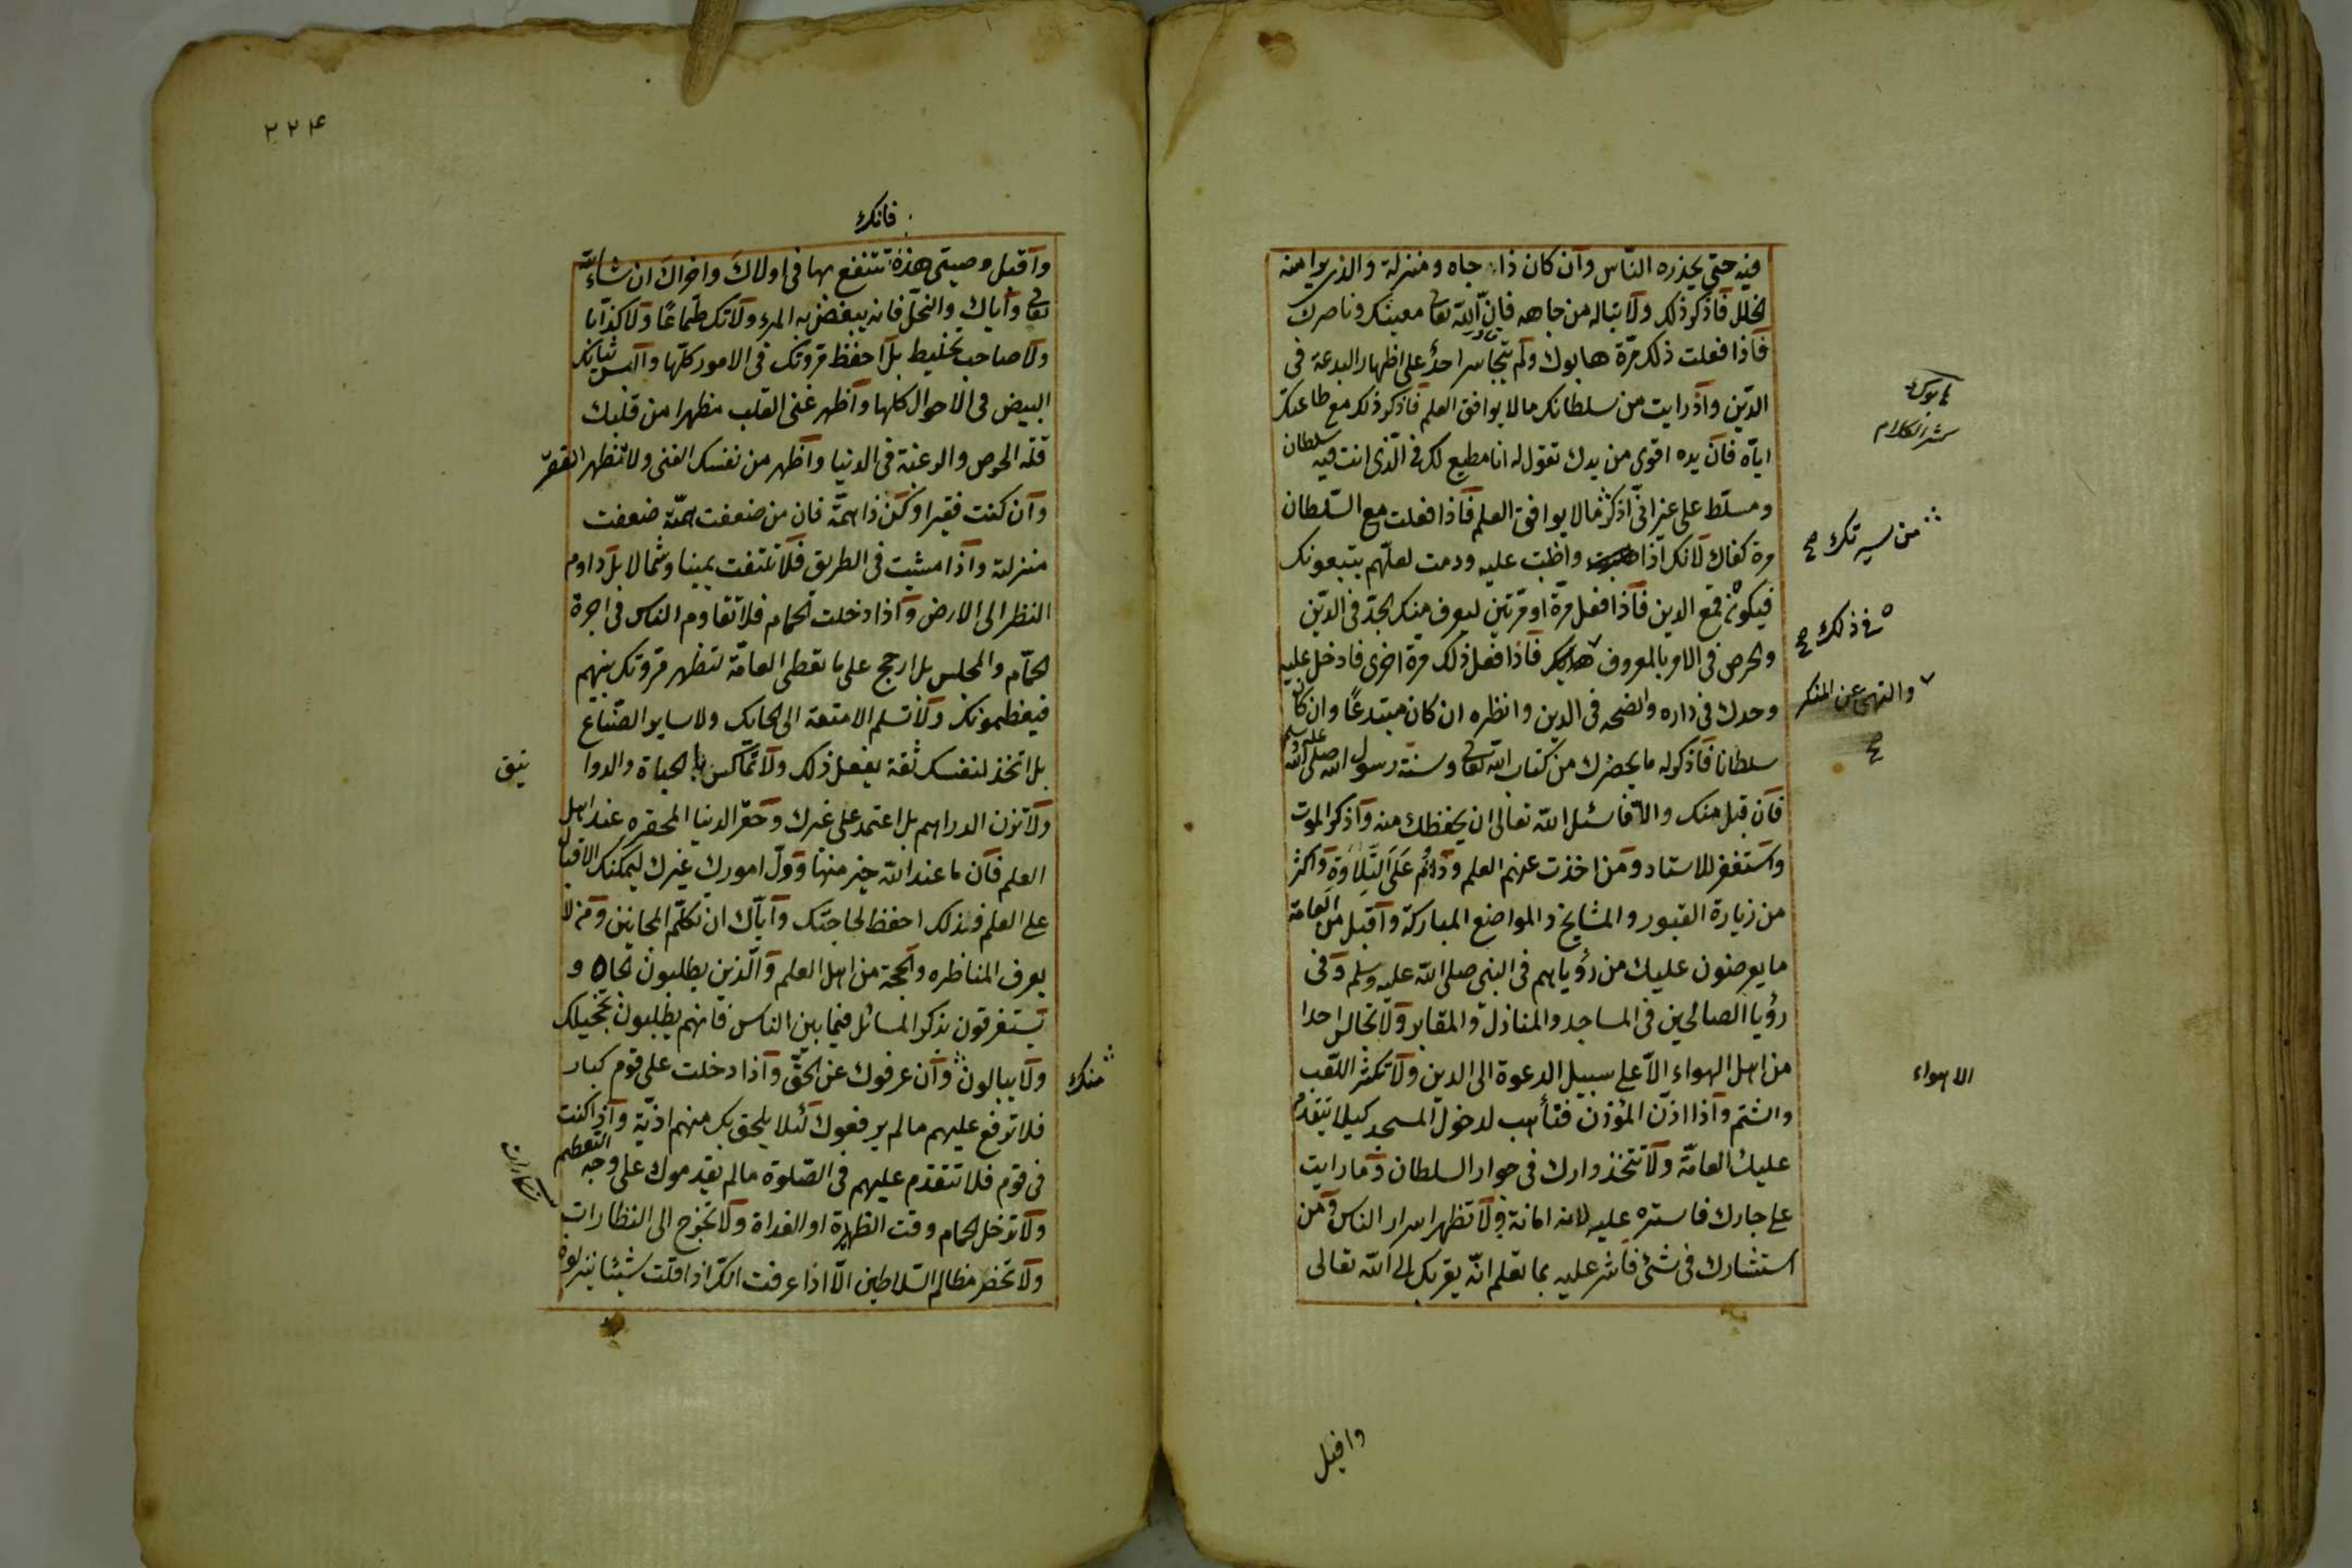 فيه حتى يحذره الناس وآن كان ذا جاه ومنزلة والذى يرا منه
الخلل فاذكر ذلك ولا تبال من جاهه فان الله تعا معينك وناصرك
فاذا فعلت ذلك مرّة هابوك ولم يتجاسر احد على اظهار البدعة فى
الدّين واذا رايت من سلطانك ما لا يوافق العلم فاذكر ذلك مع طاعتك
اياه فان يده اقوى من يدك تقول له انا مطيع لك فى الّذى انت فيه سلطان
ومسلّط على غير انّى اذكر ما لا يوافق العلم فاذا فعلت مع السّلطان
من سيرتك صح
مرة كفاك لانك اذا واظبت عليه ودمت لعلّهم يتبعونك
فيكون قمع الدين فاذا فعل مرّة او مرّتين ليعرف منك الجدّ فى الدّين
فى ذلك صح
والحرص فى الامر بالمعروف فاذا فعل ذلك مرة اخرى فادخل عليه
والنهى عن المنكر
صح
وحدك فى داره وانصحه فى الدين وناظره ان كان مبتدعًا وان كان
سلطانا فاذكر له ما يحضرك من كتاب الله تعا وسنّة رسول الله صلى الله عليه وسلم
فان قبل منك والّا فاسئل الله تعالى ان يحفظك منه واذكر الموت
واستغفر للاستاد ومن اخذت عنهم العلم وداوم على التلاوة واكثر
من زيارة القبور والمشايخ والمواضع المباركة واقبل من العامة
ما يعرضون عليك من رؤياهم فى النبى صلى الله عليه وسلم وفى
رؤيا الصالحين فى المساجد والمنازل والمقابر ولا تجالس احدا
من اهل الهواء الّا على سبيل الدعوة الى الدين ولا تكثر اللّعب
الاهواء
والشتم واذا اذّن المؤذن فتأهب لدخول المسجد كيلا يتقدم
عليك العامّة ولا تتخذ دارك فى جوار السلطان وما رايت
على جارك فاستره عليه لانه امانة ولا تظهر اسرار الناس ومن
استشارك فى شئ فاشر عليه بما تعلم انّه يقربك الى الله تعالى
واقبل
٢٢٤
فانك
واقبل وصيتى هذه تنتفع بها فى اولاك واخراك ان شاء الله
تعا واياك والبخل فانه يبغض به المرء ولا تك طمّاعًا ولا كذّابا
ولا صاحب تخليط بل احفظ مروتك فى الامور كلّها والبس ثيابك
البيض فى الاحوال كلها واظهر غنى القلب مظهرا من قلبك
قلّه الحرص والرغبة فى الدنيا واظهر من نفسك الغنى ولا تظهر الفقر
وآن كنت فقيرا وكن ذا همّة فان من ضعفت همّته ضعفت
منزلته واذا مشيت فى الطريق فلا تلتفت يمينا وشمالا بل داوم
النظر الى الارض واذا دخلت الحمام فلا تقاوم الناس فى اجرة
الحمّام والمجلس بل ارجح على ما تعطى العامّة لتظهر مروتك بينهم
فيعظمونك ولا تسلم الامتعة الى الحائك ولا ساير الصّنّاع
بل اتخذ لنفسك ثقة يفعل ذلك ولا تماكس بالحبات والدوا
نيق
ولا تزن الدراهم بل اعتمد على غيرك وحقّر الدنيا المحقره عند اهل
العلم فان ما عند الله خير منها ووّل امورك غيرك ليمكنك الاقبال
على العلم فذلك احفظ لحاجتك واياك ان تكلّم المجانين ومن لا
يعرف المناظره والحجة من اهل العلم والّذين يطلبون الجاه و
يستغرقون بذكر المسائل فيما بين الناس فانهم يطلبون تخجيلك
ولا يبالون وآن عرفوك على الحقّ واذا دخلت على قوم كبار
منك
فلا ترفع عليهم ما لم يرفعوك لئلا يلحق بك منهم اذيّة واذا كنت
فى قوم فلا تتقدم عليهم فى الصّلوة ما لم يقدموك على وجه التعظيم
ولا تدخل الحمام وقت الظهيرة او الغداة ولا تخرج الى النظارات
ولا تحضر مظالم السّلاطين الّا اذا عرفت انّك اذا قلت شيئا ينزلوه